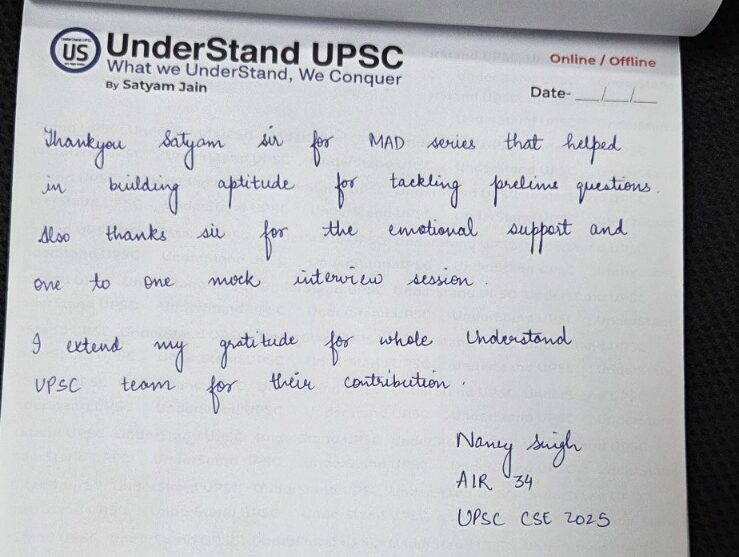 US
UnderStand UPSC
What we UnderStand, We Conquer
By Satyam Jain
Online / Offline
Date- __/__/__
Thankyou Satyam sir for MAD series that helped
in building aptitude for tackling prelims questions.
Also thanks sir for the emotional support and
one to one mock interview session.
I extend my gratitude for whole Understand
UPSC team for their contribution.
Nancy Singh
AIR 34
UPSC CSE 2025